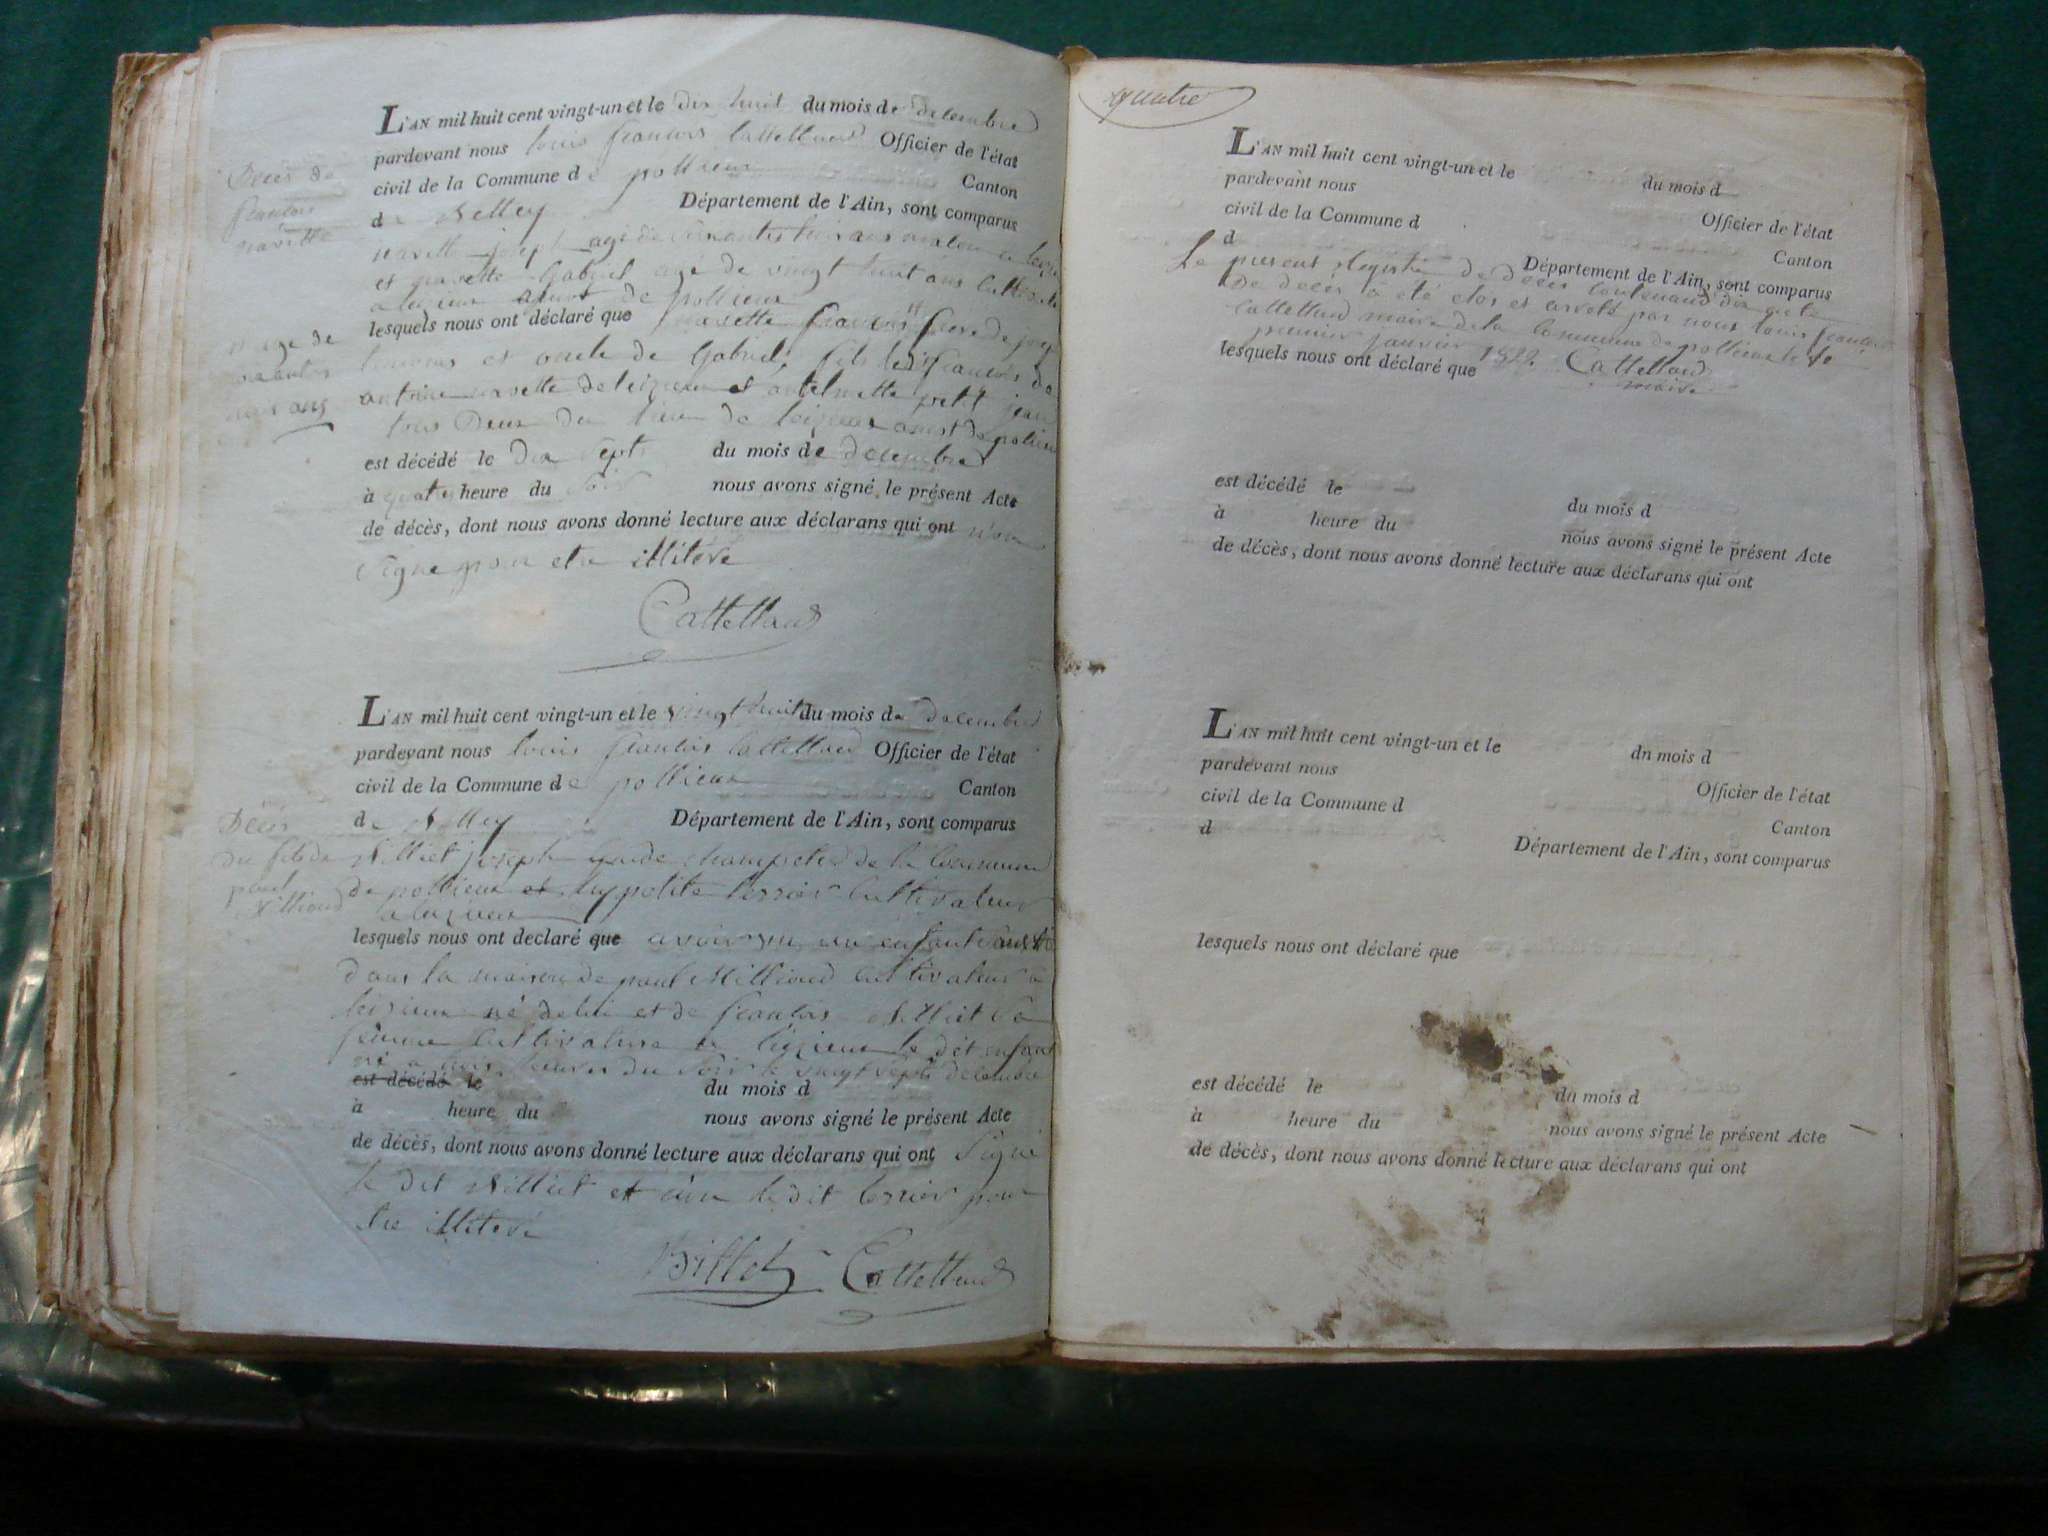 L'AN mil huit cent vingt-un et le dix huit du mois de decembre
pardevant nous louis francois Cattelland Officier de l'état
civil de la Commune de pollieux Canton
de Belley Département de l'Ain, sont comparus
navette joseph agé de ans
et navette Gabriel agé de vingt huit ans
de pollieux
lesquels nous ont déclaré que navette francois frere de
et oncle de Gabriel fils de
antoine navette de et petit jean
tous Deux du lieu de
est décédé le dix sept du mois de decembre
à quatre heure du soir nous avons signé le présent Acte
de décès, dont nous avons donné lecture aux déclarans qui ont non
signe pour etre illitéré
Cattelland
Deces de
francois
navette
age de
ans
L'AN mil huit cent vingt-un et le vingt huit du mois de decembre
pardevant nous louis francois Cattelland Officier de l'état
civil de la Commune de pollieux Canton
de Belley Département de l'Ain, sont comparus
Billiet joseph garde champetre de la Commune
de pollieux et hyppolite cultivateur
lesquels nous ont declaré que avoir vu un enfant
dans la maison de paul Millioud cultivateur a
né de lui et de Billiet sa
femme a le dit enfant
né a heures du soir le vingt sept decembre
est décédé le du mois d
à heure du nous avons signé le présent Acte
de décès, dont nous avons donné lecture aux déclarans qui ont signé
le dit Billiet et non le dit pour
etre illitéré
Billiet Cattelland
Deces
du fils de
paul
Millioud
quatre
L'AN mil huit cent vingt-un et le du mois d
pardevant nous Officier de l'état
civil de la Commune d Canton
d Département de l'Ain, sont comparus
Le present Registre de deces contenant dix acte
De deces a été clos et arreté par nous louis francois
Cattelland maire de la Commune de pollieux le
premier janvier 1822. Cattelland
maire
lesquels nous ont déclaré que
est décédé le du mois d
à heure du nous avons signé le présent Acte
de décès, dont nous avons donné lecture aux déclarans qui ont
L'AN mil huit cent vingt-un et le dn mois d
pardevant nous Officier de l'état
civil de la Commune d Canton
d Département de l'Ain, sont comparus
lesquels nous ont déclaré que
est décédé le du mois d
à heure du nous avons signé le présent Acte
de décès, dont nous avons donné lecture aux déclarans qui ont